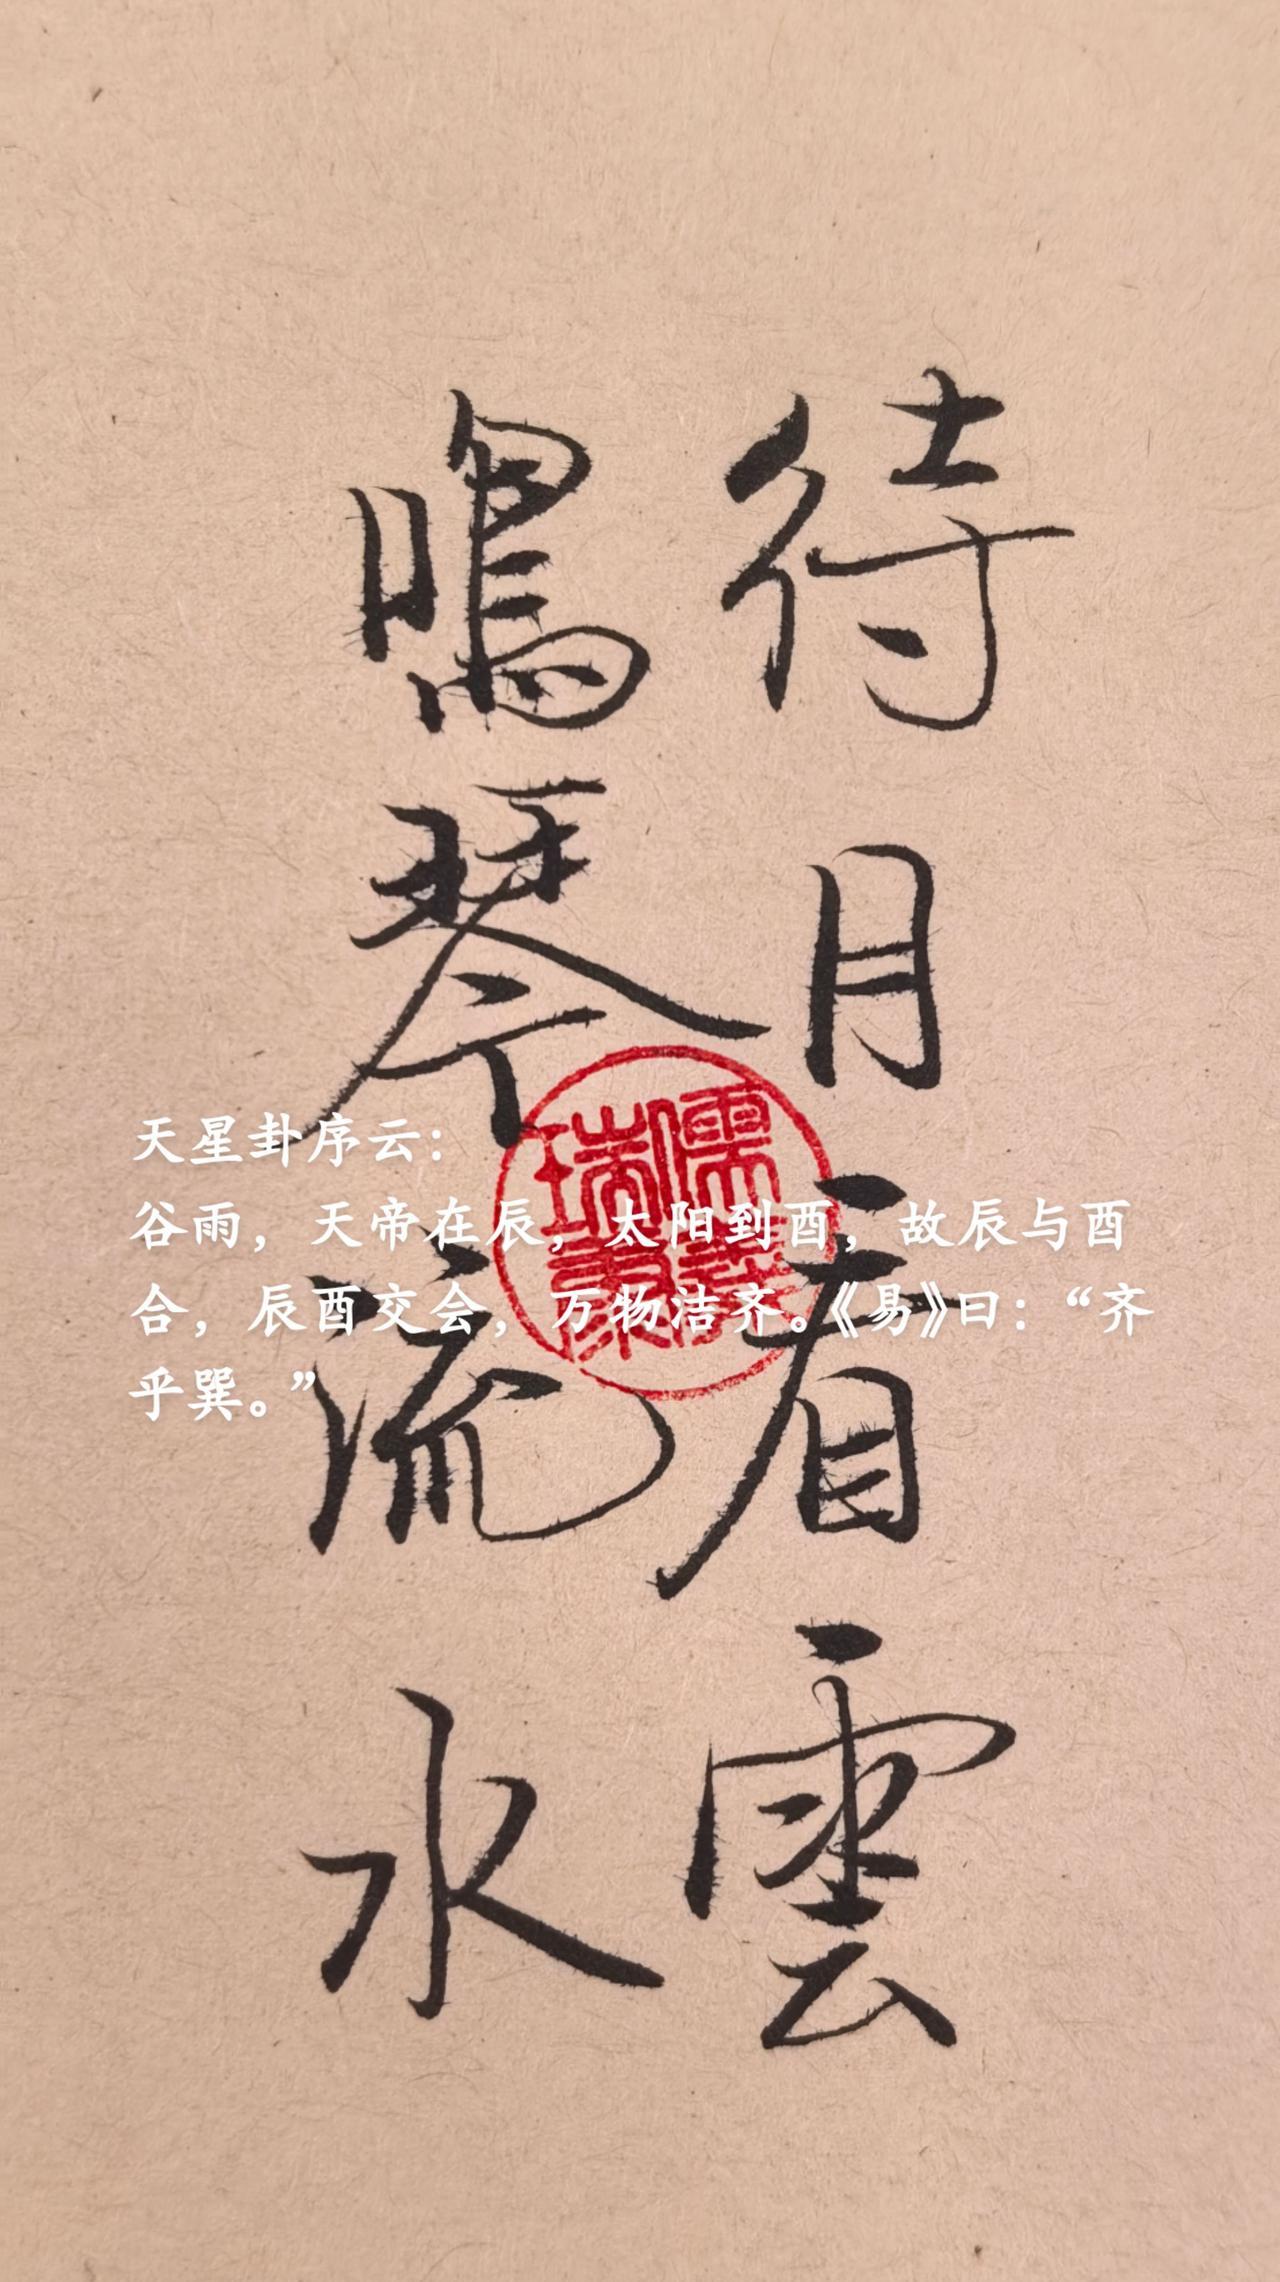 待月看雲
鳴琴流水
天星卦序云：
谷雨，天帝在辰，太阳到酉，故辰与酉
合，辰酉交会，万物洁齐。《易》曰：“齐
乎巽。”